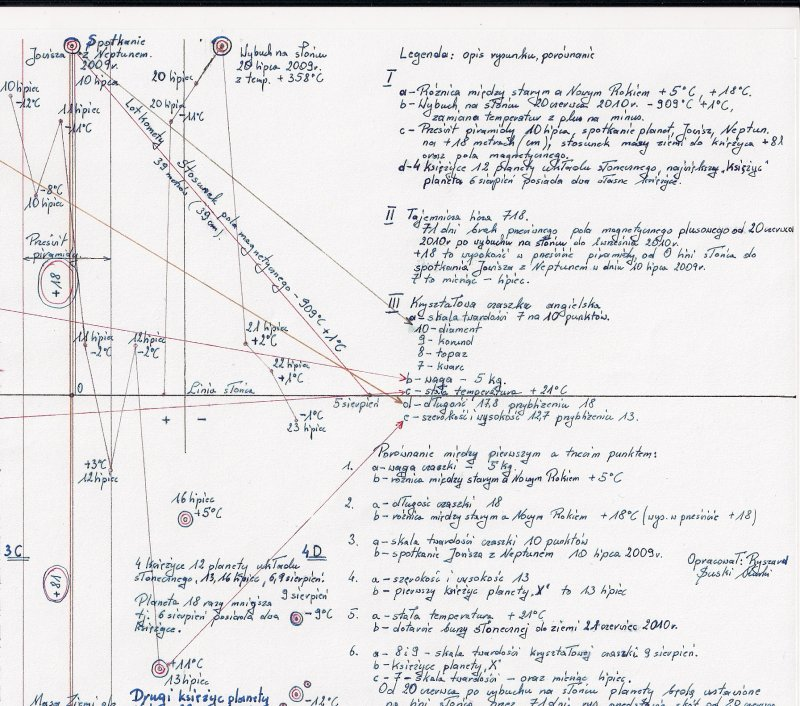 Jowisza
Spotkanie
z Neptunem.
2009r.
10 lipiec
Wybuch na słońcu
20 lipca 2009r.
z temp. +358°C
20 lipiec
20 lipiec
-11°C
10 lipiec
-12°C
11 lipiec
-11°C
-8°C
10 lipiec
Lot komety
39 metrów (39 cm).
Stosunek pola magnetycznego - 909°C +1°C
Prześwit
piramidy
+18
11 lipiec
-2°C
12 lipiec
-2°C
21 lipiec
+2°C
22 lipiec
+1°C
-1°C
23 lipiec
0
Linia słońca
5 sierpień
+ -
+3°C
12 lipiec
16 lipiec
+5°C
3C
4D
+18
4 księżyce 12 planety układu
słonecznego, 13, 16 lipiec, 6, 9 sierpień.
Planeta 18 razy mniejsza
tj. 6 sierpień posiada dwa
księżyce.
9 sierpień
-9°C
+11°C
13 lipiec
-12°C
Masa Ziemi
Drugi księżyc planety
Legenda: opis rysunku, porównanie
I
a - Różnica między starym a Nowym Rokiem +5°C, +18°C.
b - Wybuch na słońcu 20 czerwca 2010r. - 909°C +1°C,
zamiana temperatur z plus na minus.
c - Prześwit piramidy 10 lipca, spotkanie planet, Jowisz, Neptun,
na +18 metrach (cm), stosunek masy ziemi do księżyca +81
oraz pola magnetycznego.
d - 4 księżyce 12 planety układu słonecznego, największy "księżyc"
planeta 6 sierpień posiada dwa własne księżyce.
II Tajemnicza 718.
71 dni brak pola magnetycznego plusowego od 20 czerwca
2010r. po wybuchu na słońcu do 1 września 2010r.
+18 to wysokość w prześwicie piramidy, od 0 linii słońca do
spotkania Jowisza z Neptunem w dniu 10 lipca 2009r.
7 to miesiąc - lipiec.
III Kryształowa czaszka angielska
a - skala twardości 7 na 10 punktów.
10 - diament
9 - korund
8 - topaz
7 - kwarc
b - waga - 5 kg.
c - stała temperatura +21°C
d - długość 17,8 przybliżeniu 18
e - szerokość i wysokość 12,7 przybliżeniu 13.
Porównanie między pierwszym a trzecim punktem:
1. a - waga czaszki - 5 kg.
b - różnica między starym a Nowym Rokiem +5°C
2. a - długość czaszki 18
b - różnica między starym a Nowym Rokiem +18°C (wys. w prześwicie +18)
3. a - skala twardości czaszki 10 punktów
b - spotkanie Jowisza z Neptunem 10 lipca 2009r.
Opracował: Ryszard
4. a - szerokość i wysokość 13
b - pierwszy księżyc planety "X" to 13 lipiec
5. a - stała temperatura +21°C
b - dotarcie burzy słonecznej do ziemi 21 czerwiec 2010r.
6. a - 8 i 9 - skala twardości kryształowej czaszki 9 sierpień.
b - księżyce planety "X"
c - 7 - skala twardości - oraz miesiąc lipiec.
Od 20 czerwca po wybuchu na słońcu planety będą ustawione
na linii słońca przez 71 dni